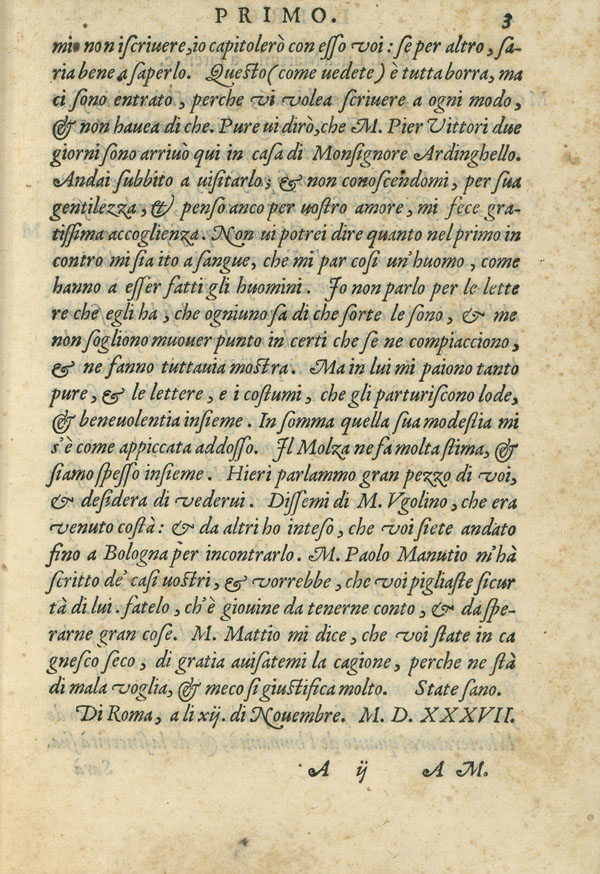 PRIMO. 3
mi non iscriuere, io capitolerò con esso voi: se per altro, sa-
ria bene a saperlo. Questo (come uedete) è tutta borra, ma
ci sono entrato, perche vi volea scriuere a ogni modo,
& non hauea di che. Pure ui dirò, che M. Pier Vittori due
giorni sono arriuò qui in casa di Monsignore Ardinghello.
Andai subbito a uisitarlo; & non conoscendomi, per sua
gentilezza, & penso anco per uostro amore, mi fece gra-
tissima accoglienza. Non ui potrei dire quanto nel primo in
contro mi sia ito a sangue, che mi par cosi un'huomo, come
hanno a esser fatti gli huomini. Io non parlo per le lette
re che egli ha, che ogniuno sa di che sorte le sono, & me
non sogliono muouer punto in certi che se ne compiacciono,
& ne fanno tuttauia mostra. Ma in lui mi paiono tanto
pure, & le lettere, e i costumi, che gli parturiscono lode,
& beneuolentia insieme. In somma quella sua modestia mi
s'è come appiccata addosso. Il Molza ne fa molta stima, &
siamo spesso insieme. Hieri parlammo gran pezzo di voi,
& desidera di vederui. Dissemi di M. Vgolino, che era
venuto costà: & da altri ho inteso, che voi siete andato
fino a Bologna per incontrarlo. M. Paolo Manutio m'hà
scritto de' casi uostri, & vorrebbe, che voi pigliaste sicur
tà di lui. fatelo, ch'è giouine da tenerne conto, & da spe-
rarne gran cose. M. Mattio mi dice, che voi state in ca
gnesco seco, di gratia auisatemi la cagione, perche ne stà
di mala voglia, & meco si giustifica molto. State sano.
Di Roma, a li xij. di Nouembre. M. D. XXXVII.
A ij A M.